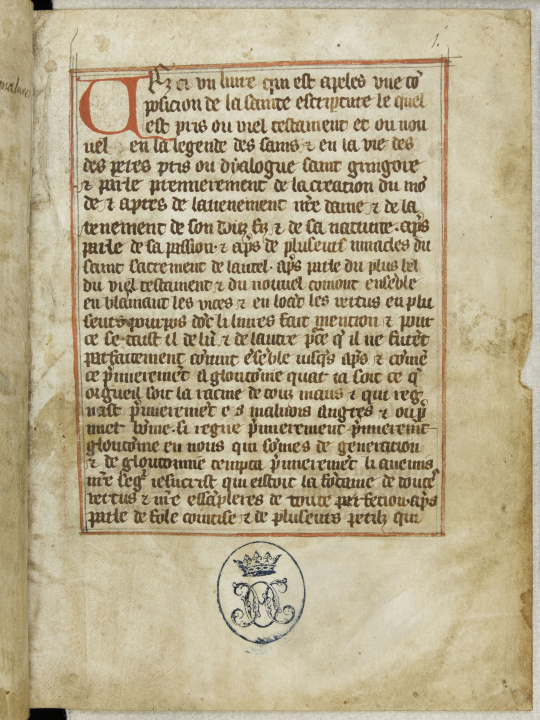 1.
Cest ci un liure qui est apeles vne cō
posicion de la sainte escripture le quel
est pris ou viel testament et ou nou
uel en la legende des sains & en la vie des
des peres pris ou dyalogue saint gringore
& parle premierement de la creation du mō
de & apres de lauenement nr̄e dame & de la
uenement de son douz fiz & de sa natiuite. ap̄s
parle de sa passion. & ap̄s de pluseurs miracles du
saint sacrement de lautel. ap̄s parle du plus bel
du viel testament & du nouuel cōmant enseble
en blamant les vices & en loāt les vertus en plu
seurs pourpos dōt li liures fait mention & pour
ce se taist il de lun & de lautre pce q̄ il ne furēt
parfaitement cōmt ēsēble iusq̄s ap̄s & cōmē
ce p̄mieremēt a gloutōnie quar ia soit ce q̄
orgueil soit la racine de touz maus & qui reg
nast p̄mieremēt es mauuois angres & ou p̄
mier hōme. si regne p̄mierement p̄mieremēt
gloutōnie en nous qui sōmes de generation
& de gloutonnie tempta p̄mieremēt li anemis
nr̄e seḡr iesucrist qui estoit la fōtaine de toutes
vertus & nr̄e essāpleres de toute perfection. ap̄s
parle de fole couitise & de pluseurs petiz qui